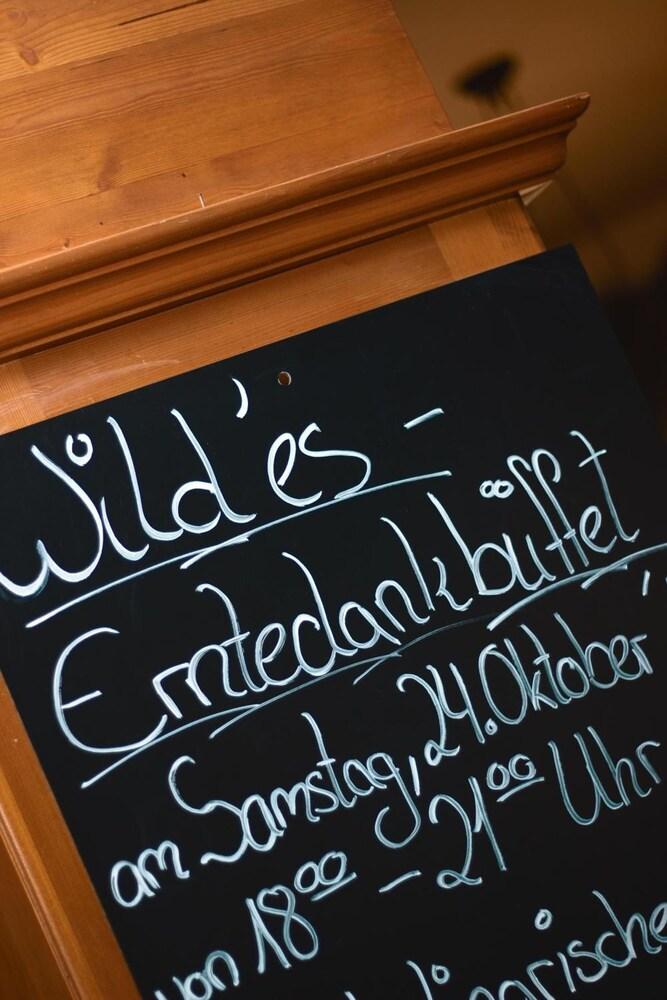 Wild'es -
Erntedankbüffet
am Samstag, 24. Oktober
von 18⁰⁰ - 21⁰⁰ Uhr